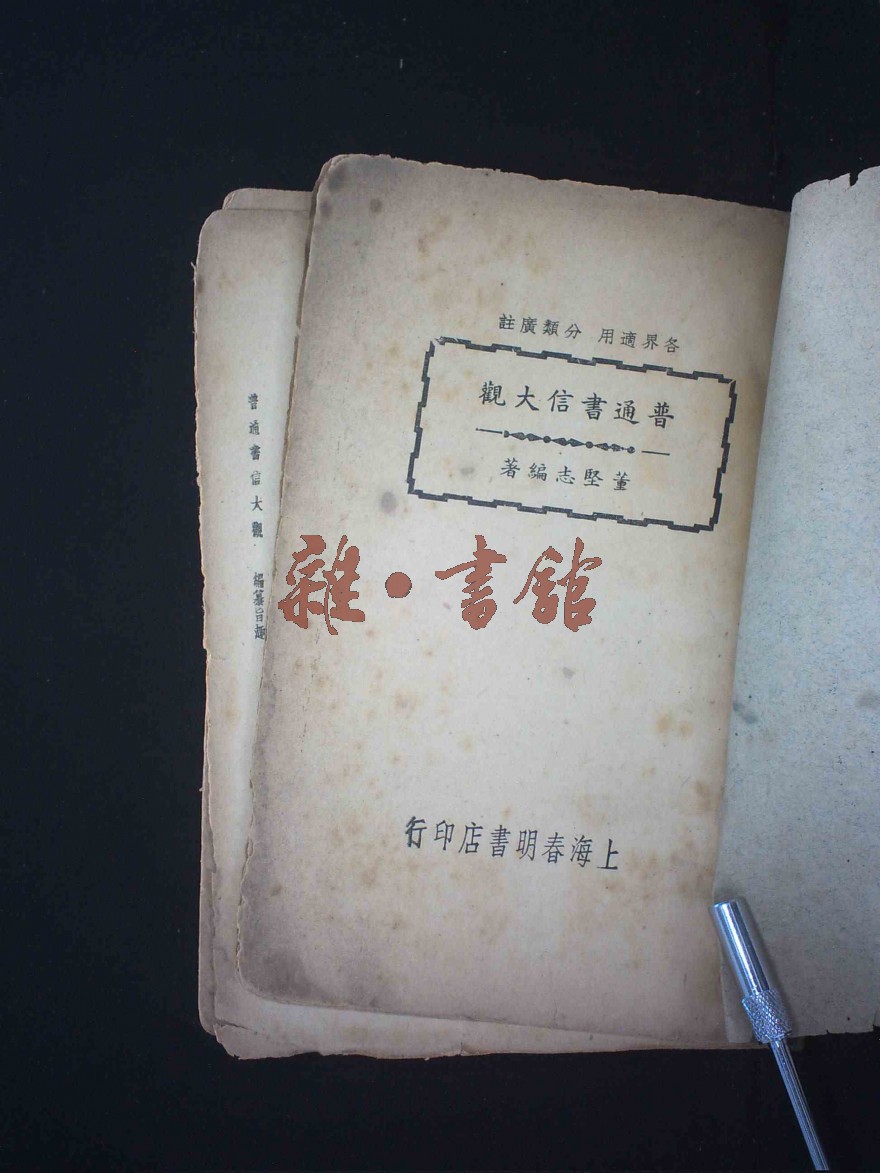 各界適用 分類廣註
普通書信大觀
董堅志編著
上海春明書店印行
普通書信大觀 編纂旨趣
雜·書館